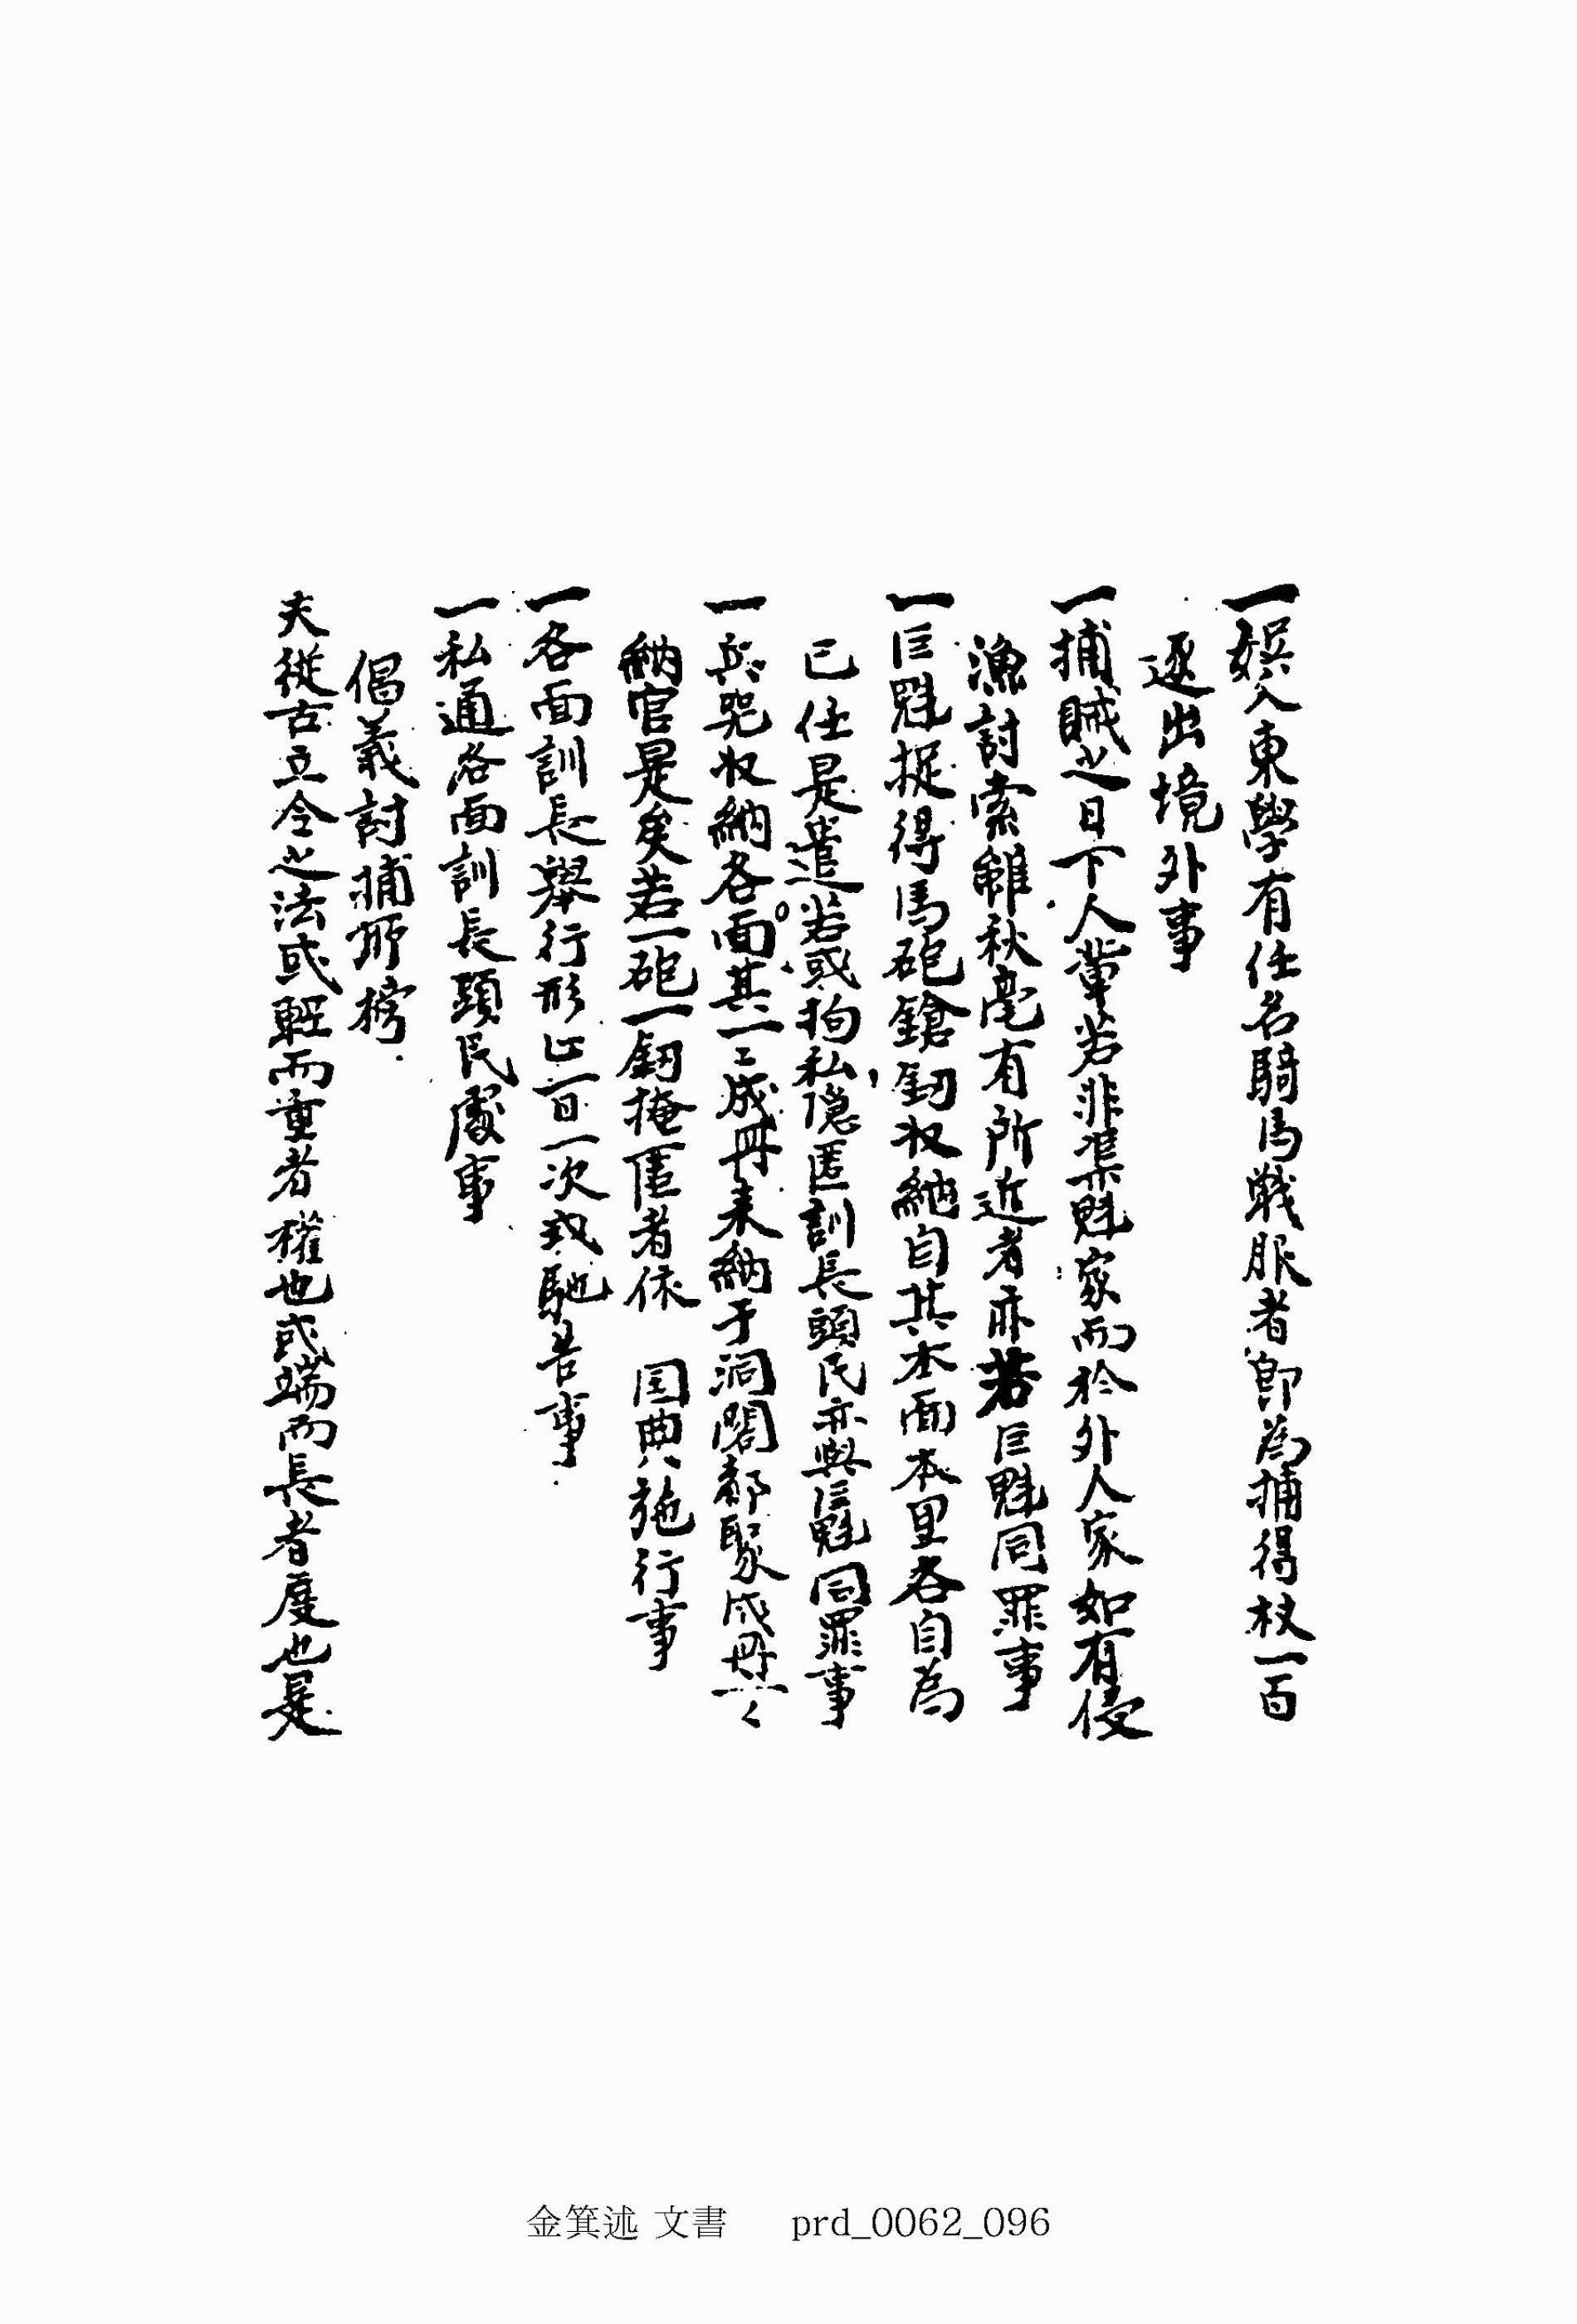 一誤入東學有任名騎馬戰服者卽爲捕得杖一百
逐出境外事
一捕賊之日下人輩若非渠魁家而於外人家如有侵
漁討索雖秋毫有所近者亦若巨魁同罪事
一巨魁捉得馬砲鎗釰收納自其本面本里各自爲
已任是遣若或拘私隱匿訓長頭民亦與巨魁同罪事
一兵器收納各面其一二成冊來納于洞閣都聚成冊一々
納官是矣若一砲一釰掩匿者依 国典施行事
一各面訓長擧行形止一日一次式馳告事
一私通各面訓長頭民處事
倡義討捕所榜
夫從古立令之法或輕而重者權也或端而長者度也是
金箕述 文書 prd_0062_096